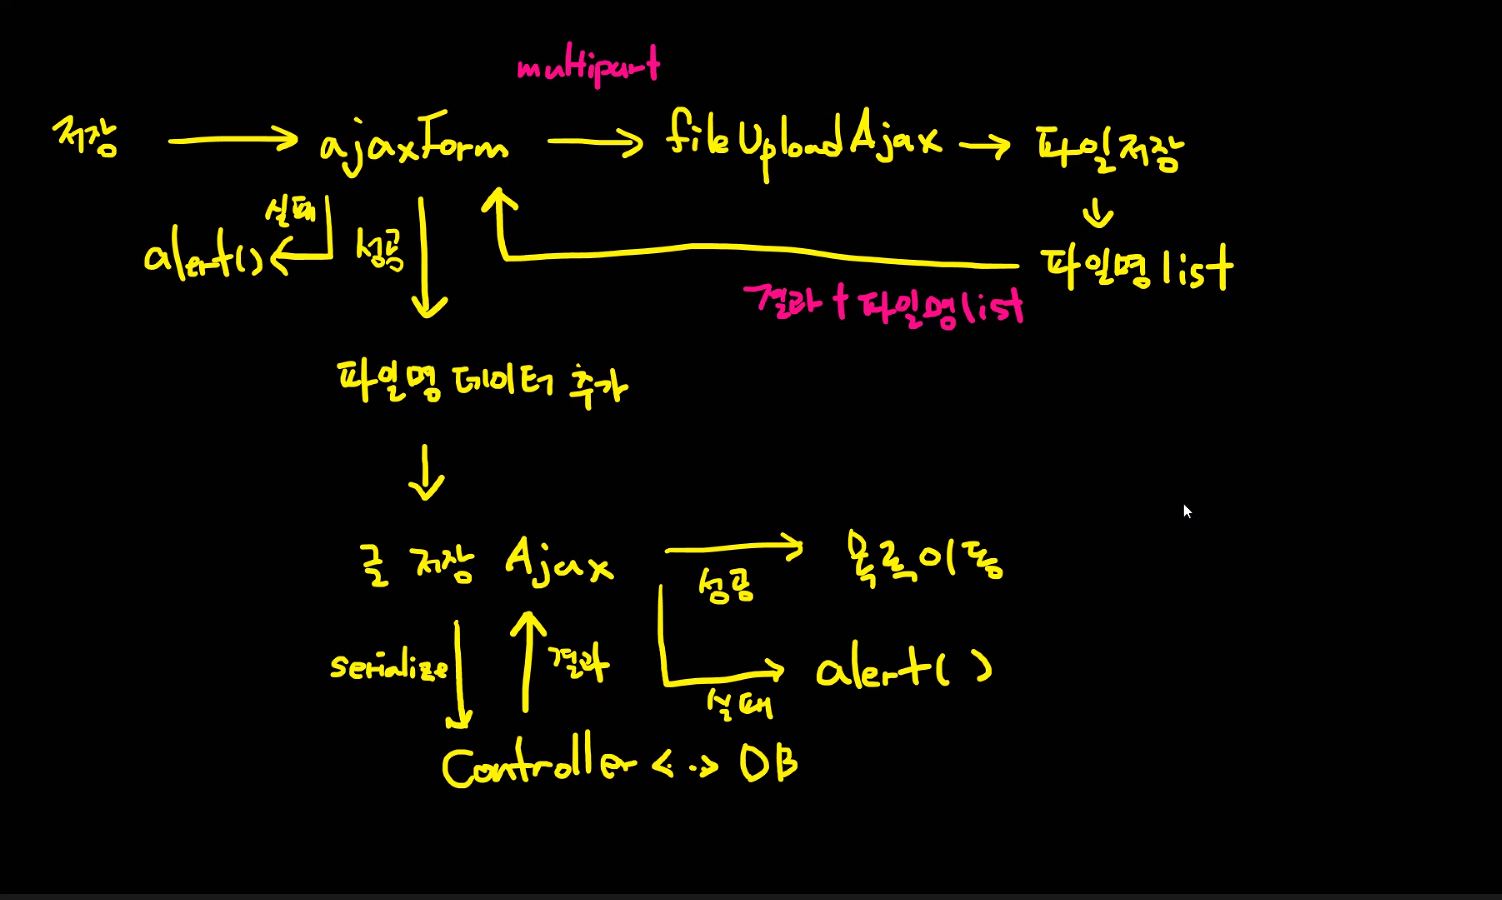 multipart
저장 → ajaxForm → fileUploadAjax → 파일저장
실패
alert() 성공 파일명 list
결과 + 파일명 list
파일명 데이터 추가
글 저장 Ajax 목록이동
성공
serialize 결과 alert( )
실패
Controller <··> DB